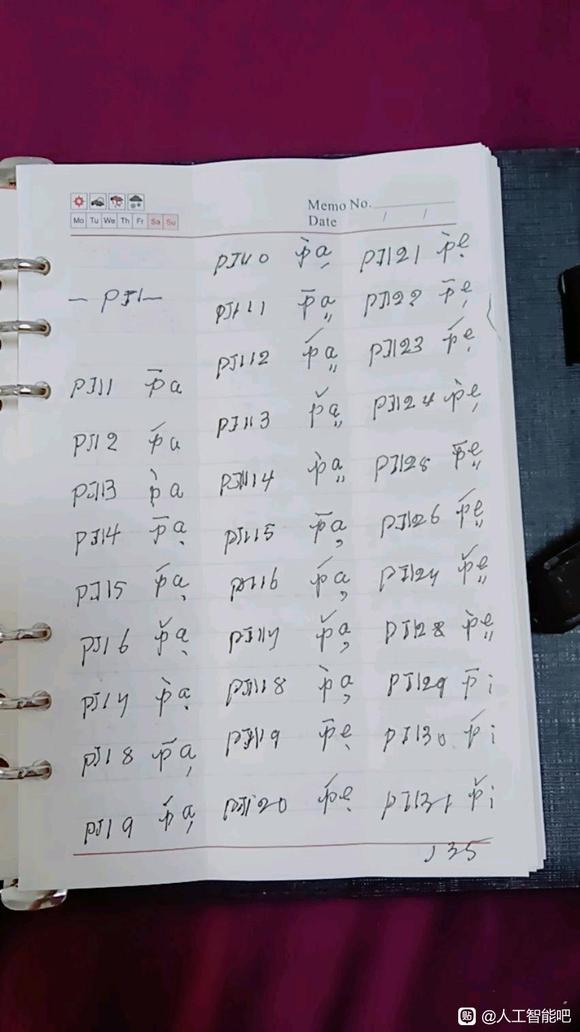 Memo No.
Date / /
Mo Tu We Th Fr Sa Su
— PJ1 —
PJ11 p̄a
PJ12 ṕa
PJ13 p̀a
PJ14 p̄ạ
PJ15 ṕa̦
PJ16 p̌ạ
PJ17 p̀ạ
PJ18 p̄a̦
PJ19 ṕa̦
PJ110 p̀a̦
PJ111 p̄a̤
PJ112 ṕa̤
PJ113 p̌a̤
PJ114 p̀a̤
PJ115 p̄a̦
PJ116 ṕa̦
PJ117 p̌a̦
PJ118 p̀a̦
PJ119 p̄ẹ
PJ120 ṕẹ
PJ121 p̀ẹ
PJ122 p̄e̦
PJ123 ṕe̦
PJ124 p̀e̦
PJ125 p̄e̤
PJ126 ṕe̤
PJ127 p̌e̤
PJ128 p̀e̤
PJ129 p̄i
PJ130 ṕi
PJ131 p̌i
135
@人工智能吧